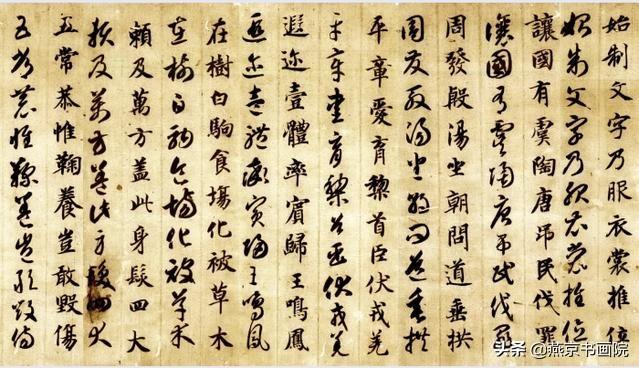 始制文字乃服衣裳推位
始制文字乃服衣裳推位
讓國有虞陶唐吊民伐罪
讓國有虞陶唐吊民伐罪
周發殷湯坐朝問道垂拱
周發殷湯坐朝問道垂拱
平章愛育黎首臣伏戎羌
平章愛育黎首臣伏戎羌
遐迩壹體率賓歸王鳴鳳
遐迩壹體率賓歸王鳴鳳
在樹白駒食場化被草木
在樹白駒食場化被草木
賴及萬方盖此身髮四大
賴及萬方盖此身髮四大
五常恭惟鞠養豈敢毀傷
五常恭惟鞠養豈敢毀傷
头条 @燕京书画院